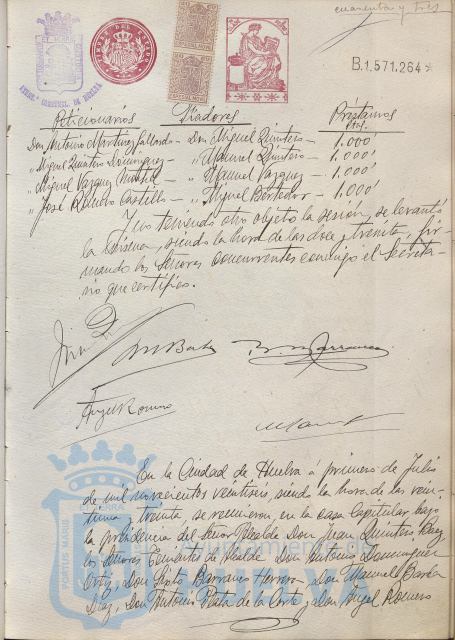 cuarenta y tres
AYUNTº. CONSTNAL. DE HUELVA
TIMBRE DEL ESTADO
B.1.571.264*
Peticionarios Fiadores Préstamos
Ptas.
Don Antonio Martinez Gallardo - Don Miguel Quintero - 1.000'
" Miguel Quintero Dominguez - " Manuel Quintero - 1.000'
" Miguel Vazquez - " Manuel Vazquez - 1.000'
" José Romero Castillo - " Miguel - 1.000'
Y no teniendo otro objeto la sesión, se levantó
la misma, siendo la hora de las doce y treinta, fir-
mando los Señores concurrentes conmigo el Secreta-
rio que certifico.
Angel Romero
En la Ciudad de Huelva á primero de Julio
de mil novecientos veintiseis, siendo la hora de las vein-
tiuna y treinta, se reunieron, en la casa Capitular bajo
la presidencia del Señor Alcalde Don Juan Quintero Baez
los Señores Tenientes de Alcalde Don Antonio Dominguez
Ortiz, Don Sixto Barranco Herrera, Don Manuel Barba
Diaz, Don Antonio Plata de la Corte y Don Angel Romero
PORTUS MARIS
Ayuntamiento de
HUELVA